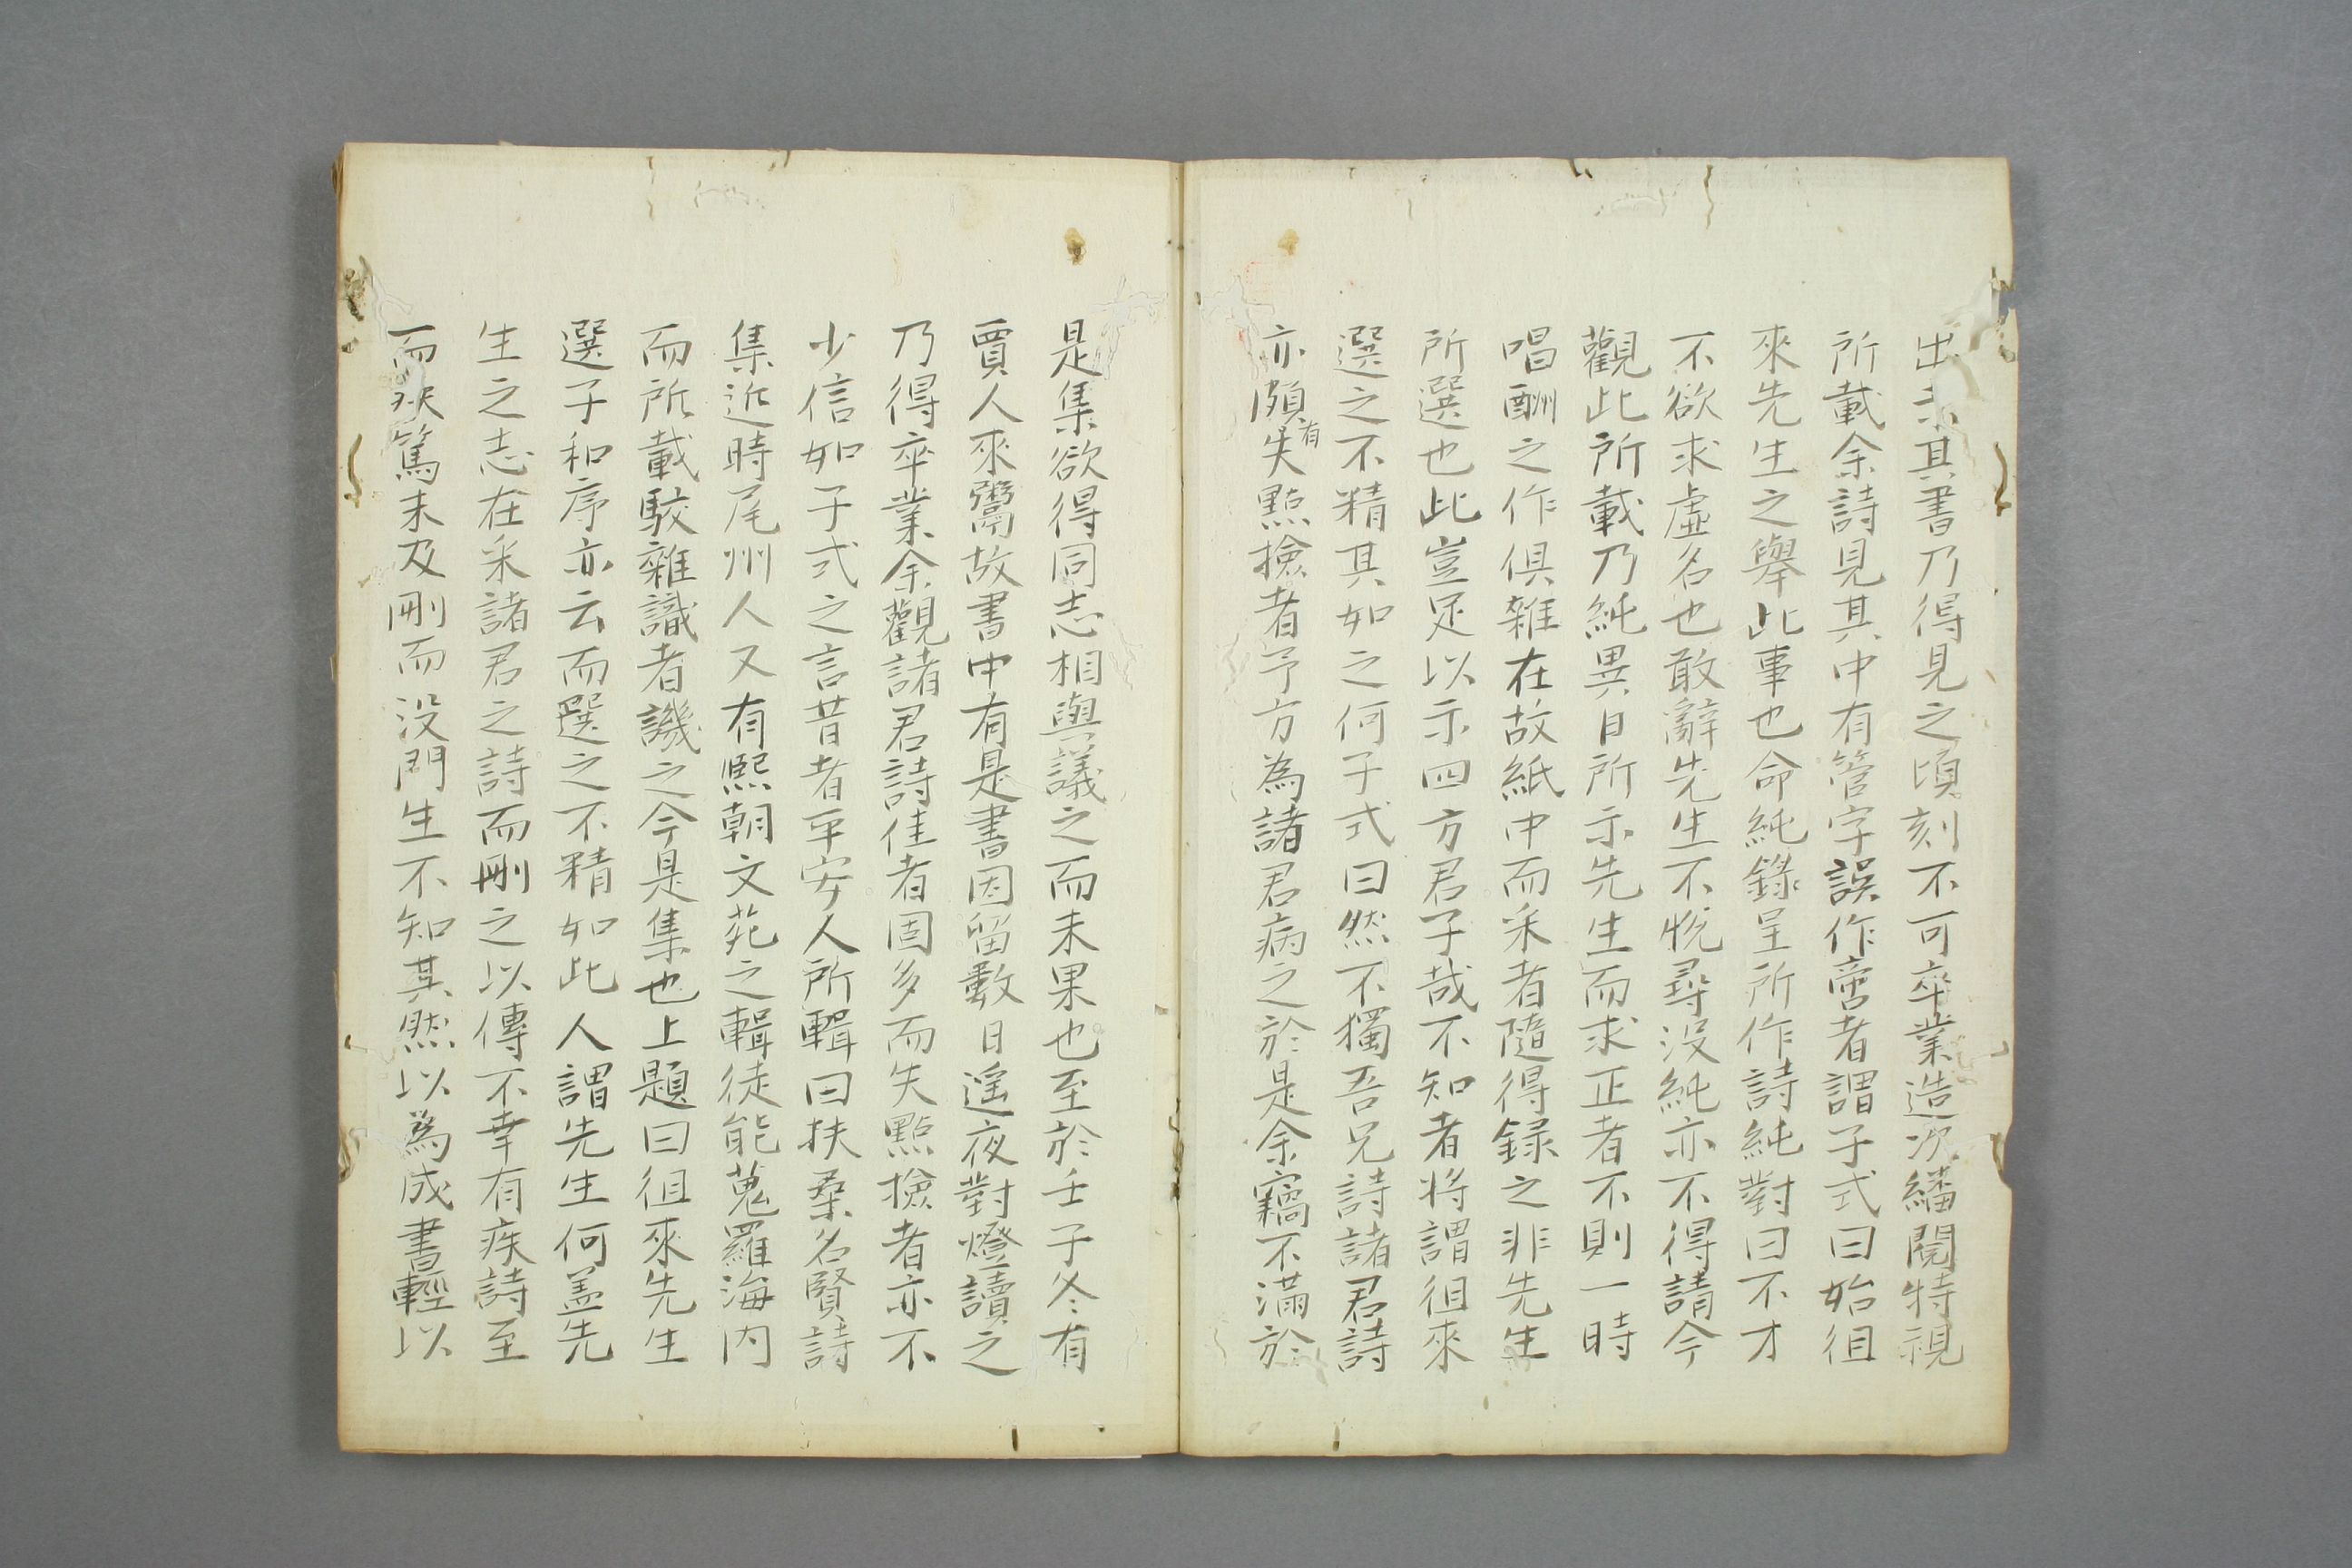 出示其書乃得見之頃刻不可卒業造次繙閱特視
所載余詩見其中有管字誤作啻者謂子式曰始徂
來先生之舉此事也命純錄呈所作詩純對曰不才
不欲求虛名也敢辭先生不悅尋没純亦不得請今
觀此所載乃純異日所示先生而求正者不則一時
唱酬之作俱雜在故紙中而采者隨得録之非先生
所選也此豈足以示四方君子哉不知者將謂徂來
選之不精其如之何子式曰然不獨吾兄詩諸君詩
亦頗有失點撿者予方為諸君病之於是余竊不滿於
是集欲得同志相與議之而未果也至於壬子冬有
賈人來鬻故書中有是書因留數日遥夜對燈讀之
乃得卒業余觀諸君詩佳者固多而失點撿者亦不
少信如子式之言昔者平安人所輯曰扶桑名賢詩
集近時尾州人又有熙朝文苑之輯徒能蒐羅海内
而所載駁雜識者譏之今是集也上題曰徂來先生
選子和序亦云而選之不精如此人謂先生何盖先
生之志在采諸君之詩而刪之以傳不幸有疾詩至
而疾篤未及刪而没門生不知其然以為成書輕以